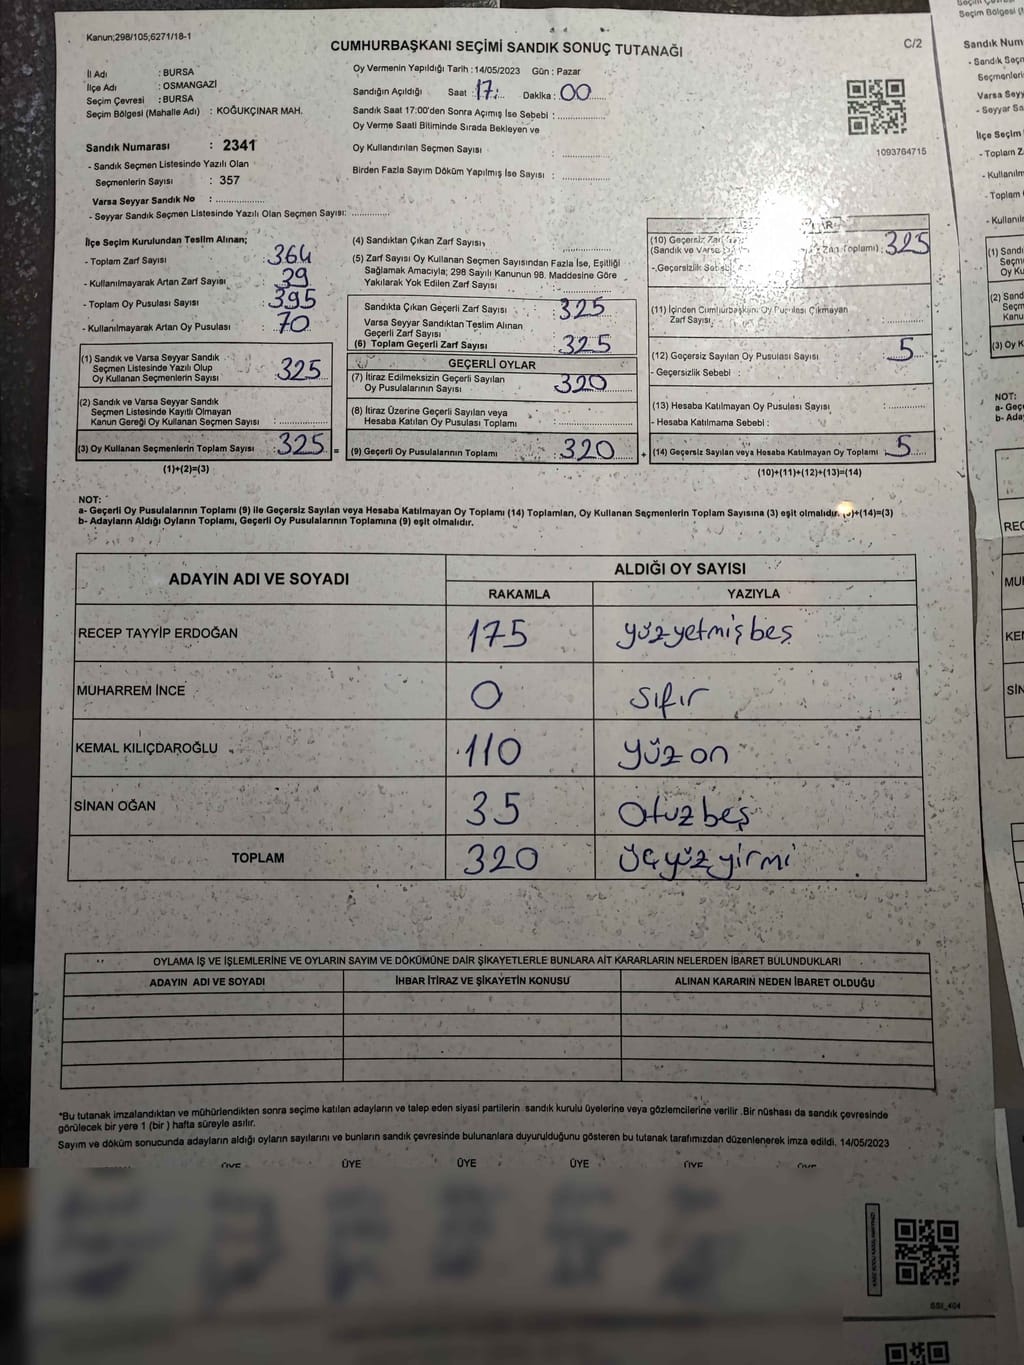 Kanun;298/105;6271/18-1
CUMHURBAŞKANI SEÇİMİ SANDIK SONUÇ TUTANAĞI
C/2
İl Adı : BURSA
İlçe Adı : OSMANGAZİ
Seçim Çevresi : BURSA
Seçim Bölgesi (Mahalle Adı) : KOĞUKÇINAR MAH.
Sandık Numarası : 2341
- Sandık Seçmen Listesinde Yazılı Olan
Seçmenlerin Sayısı : 357
Varsa Seyyar Sandık No : ..................
- Seyyar Sandık Seçmen Listesinde Yazılı Olan Seçmen Sayısı: ............
Oy Vermenin Yapıldığı Tarih :14/05/2023 Gün : Pazar
Sandığın Açıldığı Saat : 17: Dakika : 00
Sandık Saat 17:00'den Sonra Açımış İse Sebebi : ..............
Oy Verme Saati Bitiminde Sırada Bekleyen ve
Oy Kullandırılan Seçmen Sayısı : ..............
Birden Fazla Sayım Döküm Yapılmış İse Sayısı : ..............
1093764715
İlçe Seçim Kurulundan Teslim Alınan;
- Toplam Zarf Sayısı : 364
- Kullanılmayarak Artan Zarf Sayısı : 39
- Toplam Oy Pusulası Sayısı : 395
- Kullanılmayarak Artan Oy Pusulası : 70
(1) Sandık ve Varsa Seyyar Sandık
Seçmen Listesinde Yazılı Olup
Oy Kullanan Seçmenlerin Sayısı : 325
(2) Sandık ve Varsa Seyyar Sandık
Seçmen Listesinde Kayıtlı Olmayan
Kanun Gereği Oy Kullanan Seçmen Sayısı : ..............
(3) Oy Kullanan Seçmenlerin Toplam Sayısı : 325 =
(1)+(2)=(3)
(4) Sandıktan Çıkan Zarf Sayısı : ..............
(5) Zarf Sayısı Oy Kullanan Seçmen Sayısından Fazla İse, Eşitliği
Sağlamak Amacıyla; 298 Sayılı Kanunun 98. Maddesine Göre
Yakılarak Yok Edilen Zarf Sayısı : ..............
Sandıkta Çıkan Geçerli Zarf Sayısı : 325
Varsa Seyyar Sandıktan Teslim Alınan
Geçerli Zarf Sayısı : ..............
(6) Toplam Geçerli Zarf Sayısı : 325
GEÇERLİ OYLAR
(7) İtiraz Edilmeksizin Geçerli Sayılan
Oy Pusulalarının Sayısı : 320
(8) İtiraz Üzerine Geçerli Sayılan veya
Hesaba Katılan Oy Pusulası Toplamı : ..............
(9) Geçerli Oy Pusulalarının Toplamı : 320 +
(10) Geçersiz
(Sandık ve Varsa Toplamı) : 325
- Geçersizlik
(11) İçinden Cumhurbaşkanı Oy Pusulası Çıkmayan
Zarf Sayısı : ..............
(12) Geçersiz Sayılan Oy Pusulası Sayısı : 5
- Geçersizlik Sebebi :
(13) Hesaba Katılmayan Oy Pusulası Sayısı : ..............
- Hesaba Katılmama Sebebi :
(14) Geçersiz Sayılan veya Hesaba Katılmayan Oy Toplamı : 5
(10)+(11)+(12)+(13)=(14)
NOT:
a- Geçerli Oy Pusulalarının Toplamı (9) ile Geçersiz Sayılan veya Hesaba Katılmayan Oy Toplamı (14) Toplamları, Oy Kullanan Seçmenlerin Toplam Sayısına (3) eşit olmalıdır. (9)+(14)=(3)
b- Adayların Aldığı Oyların Toplamı, Geçerli Oy Pusulalarının Toplamına (9) eşit olmalıdır.
ADAYIN ADI VE SOYADI ALDIĞI OY SAYISI
RAKAMLA YAZIYLA
RECEP TAYYİP ERDOĞAN 175 yüzyetmişbeş
MUHARREM İNCE 0 sıfır
KEMAL KILIÇDAROĞLU 110 yüz on
SİNAN OĞAN 35 Otuzbeş
TOPLAM 320 üçyüzyirmi
OYLAMA İŞ VE İŞLEMLERİNE VE OYLARIN SAYIM VE DÖKÜMÜNE DAİR ŞİKAYETLERLE BUNLARA AİT KARARLARIN NELERDEN İBARET BULUNDUKLARI
ADAYIN ADI VE SOYADI İHBAR İTİRAZ VE ŞİKAYETİN KONUSU ALINAN KARARIN NEDEN İBARET OLDUĞU
*Bu tutanak imzalandıktan ve mühürlendikten sonra seçime katılan adayların ve talep eden siyasi partilerin sandık kurulu üyelerine veya gözlemcilerine verilir .Bir nüshası da sandık çevresinde
görülecek bir yere 1 (bir ) hafta süreyle asılır.
Sayım ve döküm sonucunda adayların aldığı oyların sayılarını ve bunların sandık çevresinde bulunanlara duyurulduğunu gösteren bu tutanak tarafımızdan düzenlenerek imza edildi. 14/05/2023
ÜYE ÜYE ÜYE ÜYE ÜYE
Sandık Num
Seçmenlerin
Varsa Seyy
- Seyyar Sa
İlçe Seçim
- Toplam Z
- Kullanılm
- Toplam
- Kullanıl
NOT:
a- Geçe
b- Ada